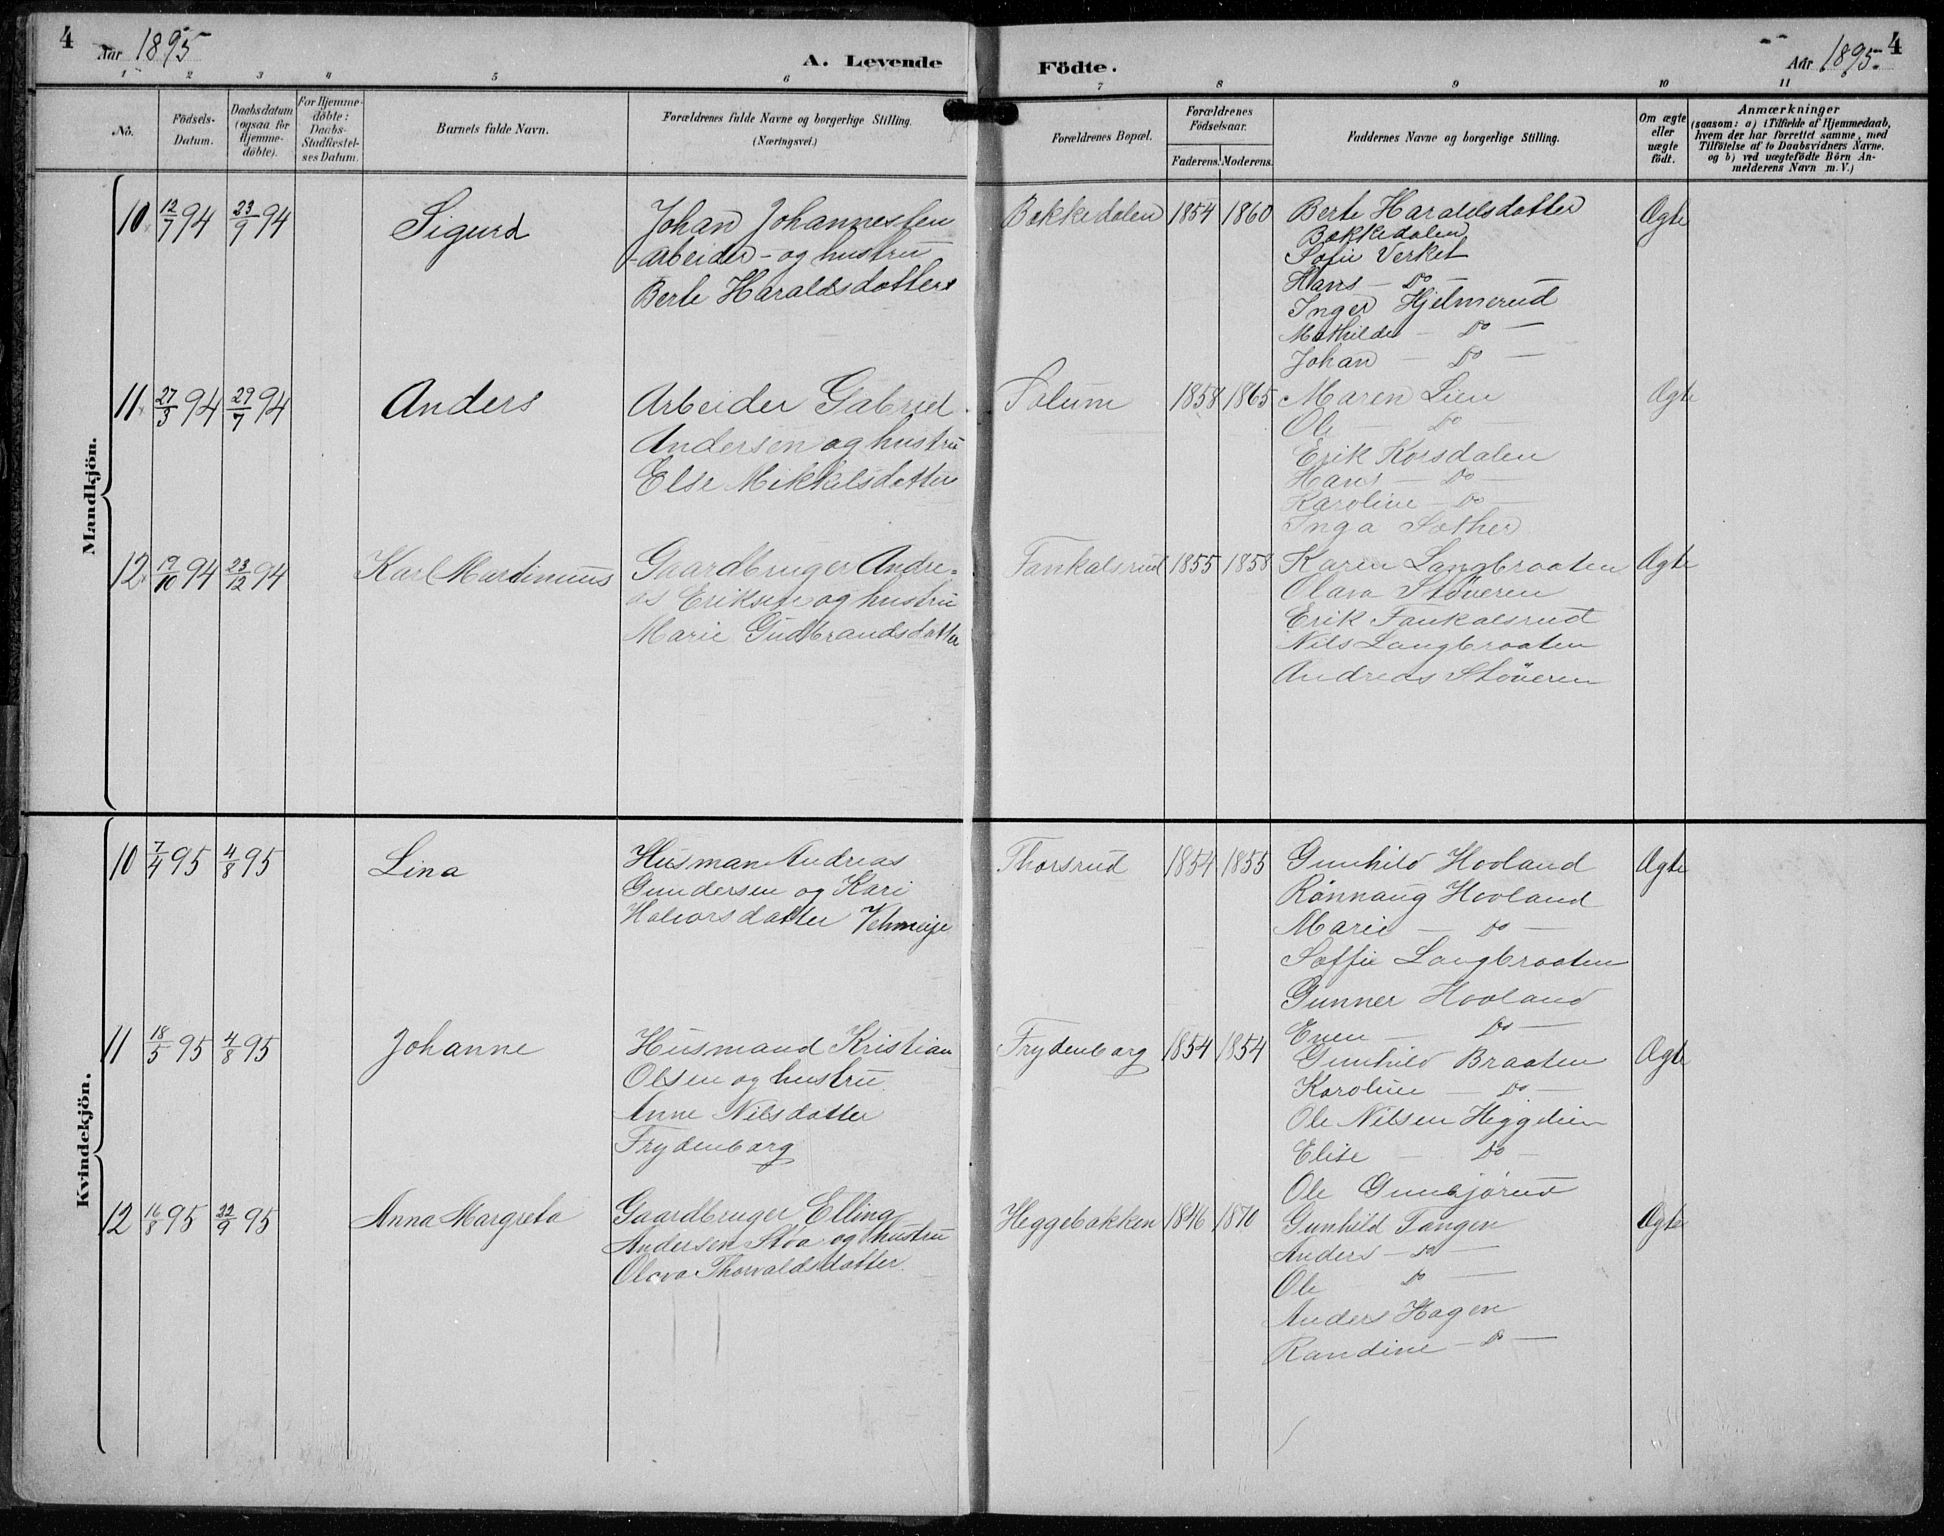 4
Aar 1895
A. Levende
Födte.
Aar 1895.
4
1 2 3 4 5 6 7 8 9 10 11
No.
Födsels-
Datum.
Daabsdatum
(ogsaa för
Hjemme-
döbte).
For Hjemme-
döbte:
Daabs-
Stadfæstel-
ses Datum.
Barnets fulde Navn.
Forældrenes fulde Navne og borgerlige Stilling.
(Næringsvei.)
Forældrenes Bopæl.
Forældrenes
Födselsaar.
Faderens. Moderens.
Faddernes Navne og borgerlige Stilling.
Om ægte
eller
uægte
födt.
Anmærkninger
(saasom: a) i Tilfælde af Hjemmedaab,
hvem der har forrettet samme, med
Tilföielse af to Daabsvidners Navne,
og b) ved uægtefödte Börn An-
melderens Navn m. V.)
Mandkjön.
10 12/7 94 23/9 94 Sigurd
Johan Johannessen
- Arbeider - og hustru
Berte Haraldsdatter
Bakkedalen 1854 1860
Berte Haraldsdatter
Bakkedalen
Sofie Verket
Hans — Do —
Inger Hjelmerud
Mathilde — Do —
Johan — Do —
Ægte
11 27/3 94 29/7 94 Anders
Arbeider Gabriel
Andersen og hustru
Else Mikkelsdatter
Solum 1858 1865
Maren Lien
Ole — Do —
Erik Korsdalen
Hans — Do —
Karoline — Do —
Inga Sæther
Ægte
12 19/10 94 23/12 94 Karl Martinius
Gaardbruger Andre-
as Eriksen og hustru
Marie Gudbrandsdatter
Fankalsrud 1855 1858
Karen Langbraaten
Olava Støveren
Erik Fankalsrud
Nils Langbraaten
Andreas Støveren
Ægte
Kvindekjön.
10 7/4 95 4/8 95 Lina
Husman Andreas
Gundersen og Kari
Halvorsdatter
Thorsrud 1854 1855
Gunhild Hovland
Rønnaug Hovland
Marie — Do —
Soffie Langbraaten
Gunner Hovland
Even — Do —
Ægte
11 18/5 95 4/8 95 Johanne
Husmand Kristian
Olsen og hustru
Anne Nilsdatter
Frydenborg
Frydenborg 1854 1854
Gunhild Braaten
Karoline — Do —
Ole Nilsen Heggelien
Elise — Do —
Ole Gunbjørud
Ægte
12 16/8 95 22/9 95 Anna Margreta
Gaardbruger Elling
Andersen Stoa og hustru
Olava Thorvaldsdatter
Heggebakken 1846 1870
Gunhild Tangen
Anders — Do —
Ole Do —
Anders Hagen
Randine — Do —
Ægte